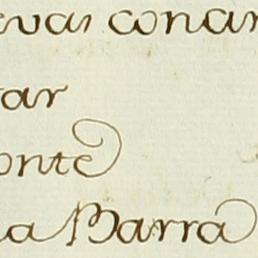 evas conar
ar
onte
la Barra